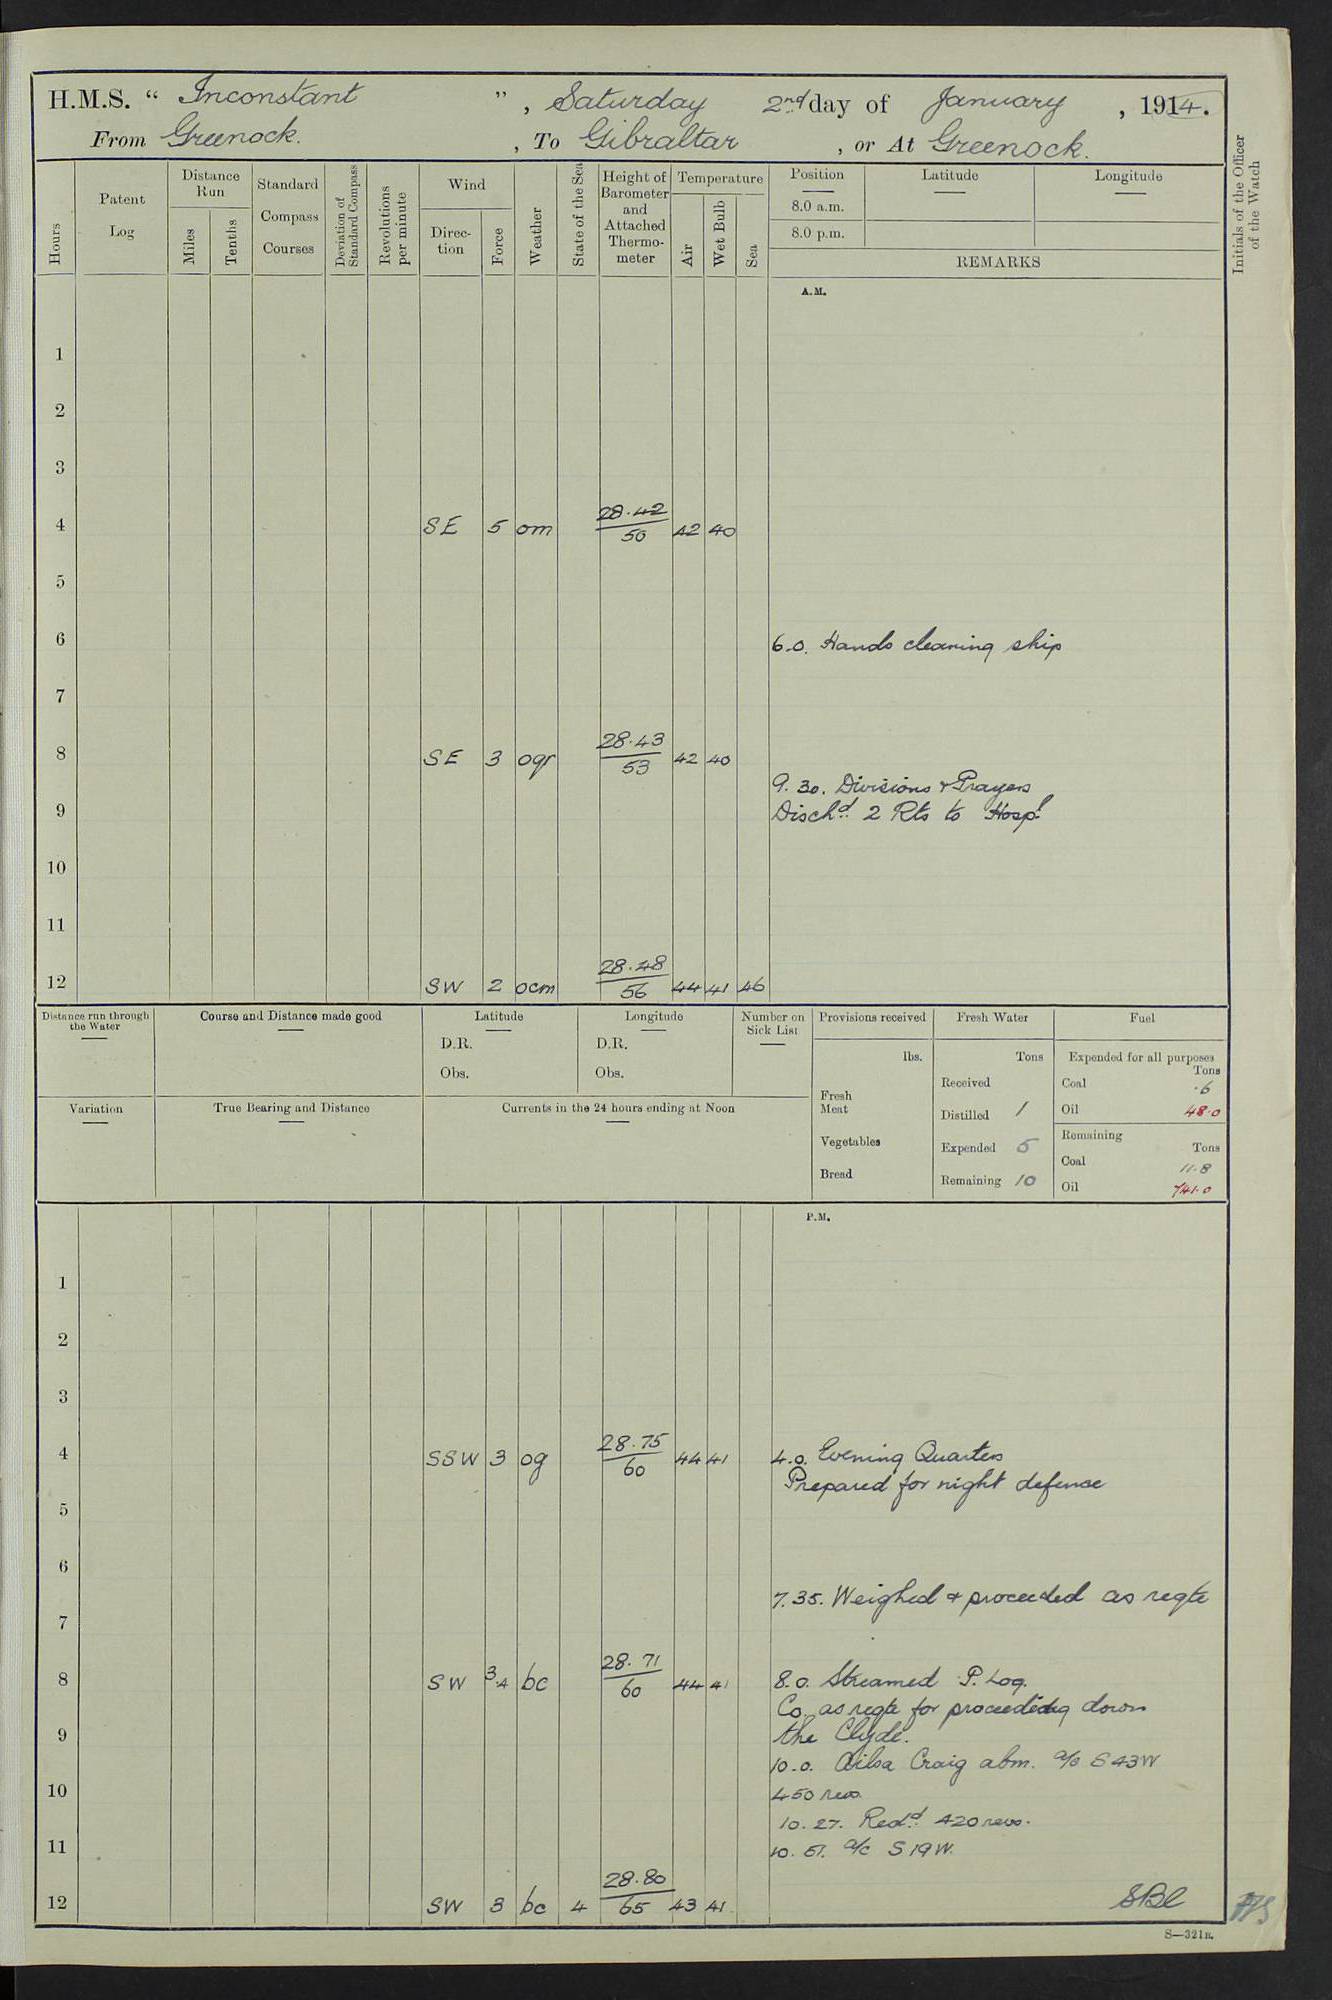 H.M.S. “ Inconstant ” , Saturday 2nd day of January , 1914.
From Greenock. , To Gibraltar , or At Greenock.
Hours
Patent Log
Distance Run
Miles
Tenths
Standard Compass Courses
Deviation of Standard Compass
Revolutions per minute
Wind
Direction
Force
Weather
State of the Sea
Height of Barometer and Attached Thermometer
Temperature
Air
Wet Bulb
Sea
Position Latitude Longitude
8.0 a.m.
8.0 p.m.
REMARKS
Initials of the Officer of the Watch
A.M.
1
2
3
4 SE 5 om 28.42 50 42 40
5
6 6.0. Hands cleaning ship
7
8 SE 3 ogr 28.43 53 42 40
9.30. Divisions & Prayers
9 Dischd. 2 Rts to Hospl.
10
11
12 SW 2 ocm 28.48 56 44 41 46
Distance run through the Water
Course and Distance made good
Latitude
D.R.
Obs.
Longitude
D.R.
Obs.
Number on Sick List
Provisions received
lbs.
Fresh Meat
Vegetables
Bread
Fresh Water
Tons
Received
Distilled 1
Expended 5
Remaining 10
Fuel
Expended for all purposes
Tons
Coal .6
Oil 48.0
Remaining
Tons
Coal 11.8
Oil 741.0
Variation
True Bearing and Distance
Currents in the 24 hours ending at Noon
P.M.
1
2
3
4 SSW 3 og 28.75 60 44 41 4.0. Evening Quarters
Prepared for night defence
5
6
7.35. Weighed & proceeded as reqte
7
8 SW 3.4 bc 28.71 60 44 41 8.0. Streamed P. Log.
Co. as reqte for proceeding down
9 the Clyde.
10.0. Ailsa Craig abm. a/c S43W
10 450 revs.
10.27. Redd. 420 revs.
11 10.51. a/c S19W.
12 SW 3 bc 4 28.80 65 43 41
S—321B.